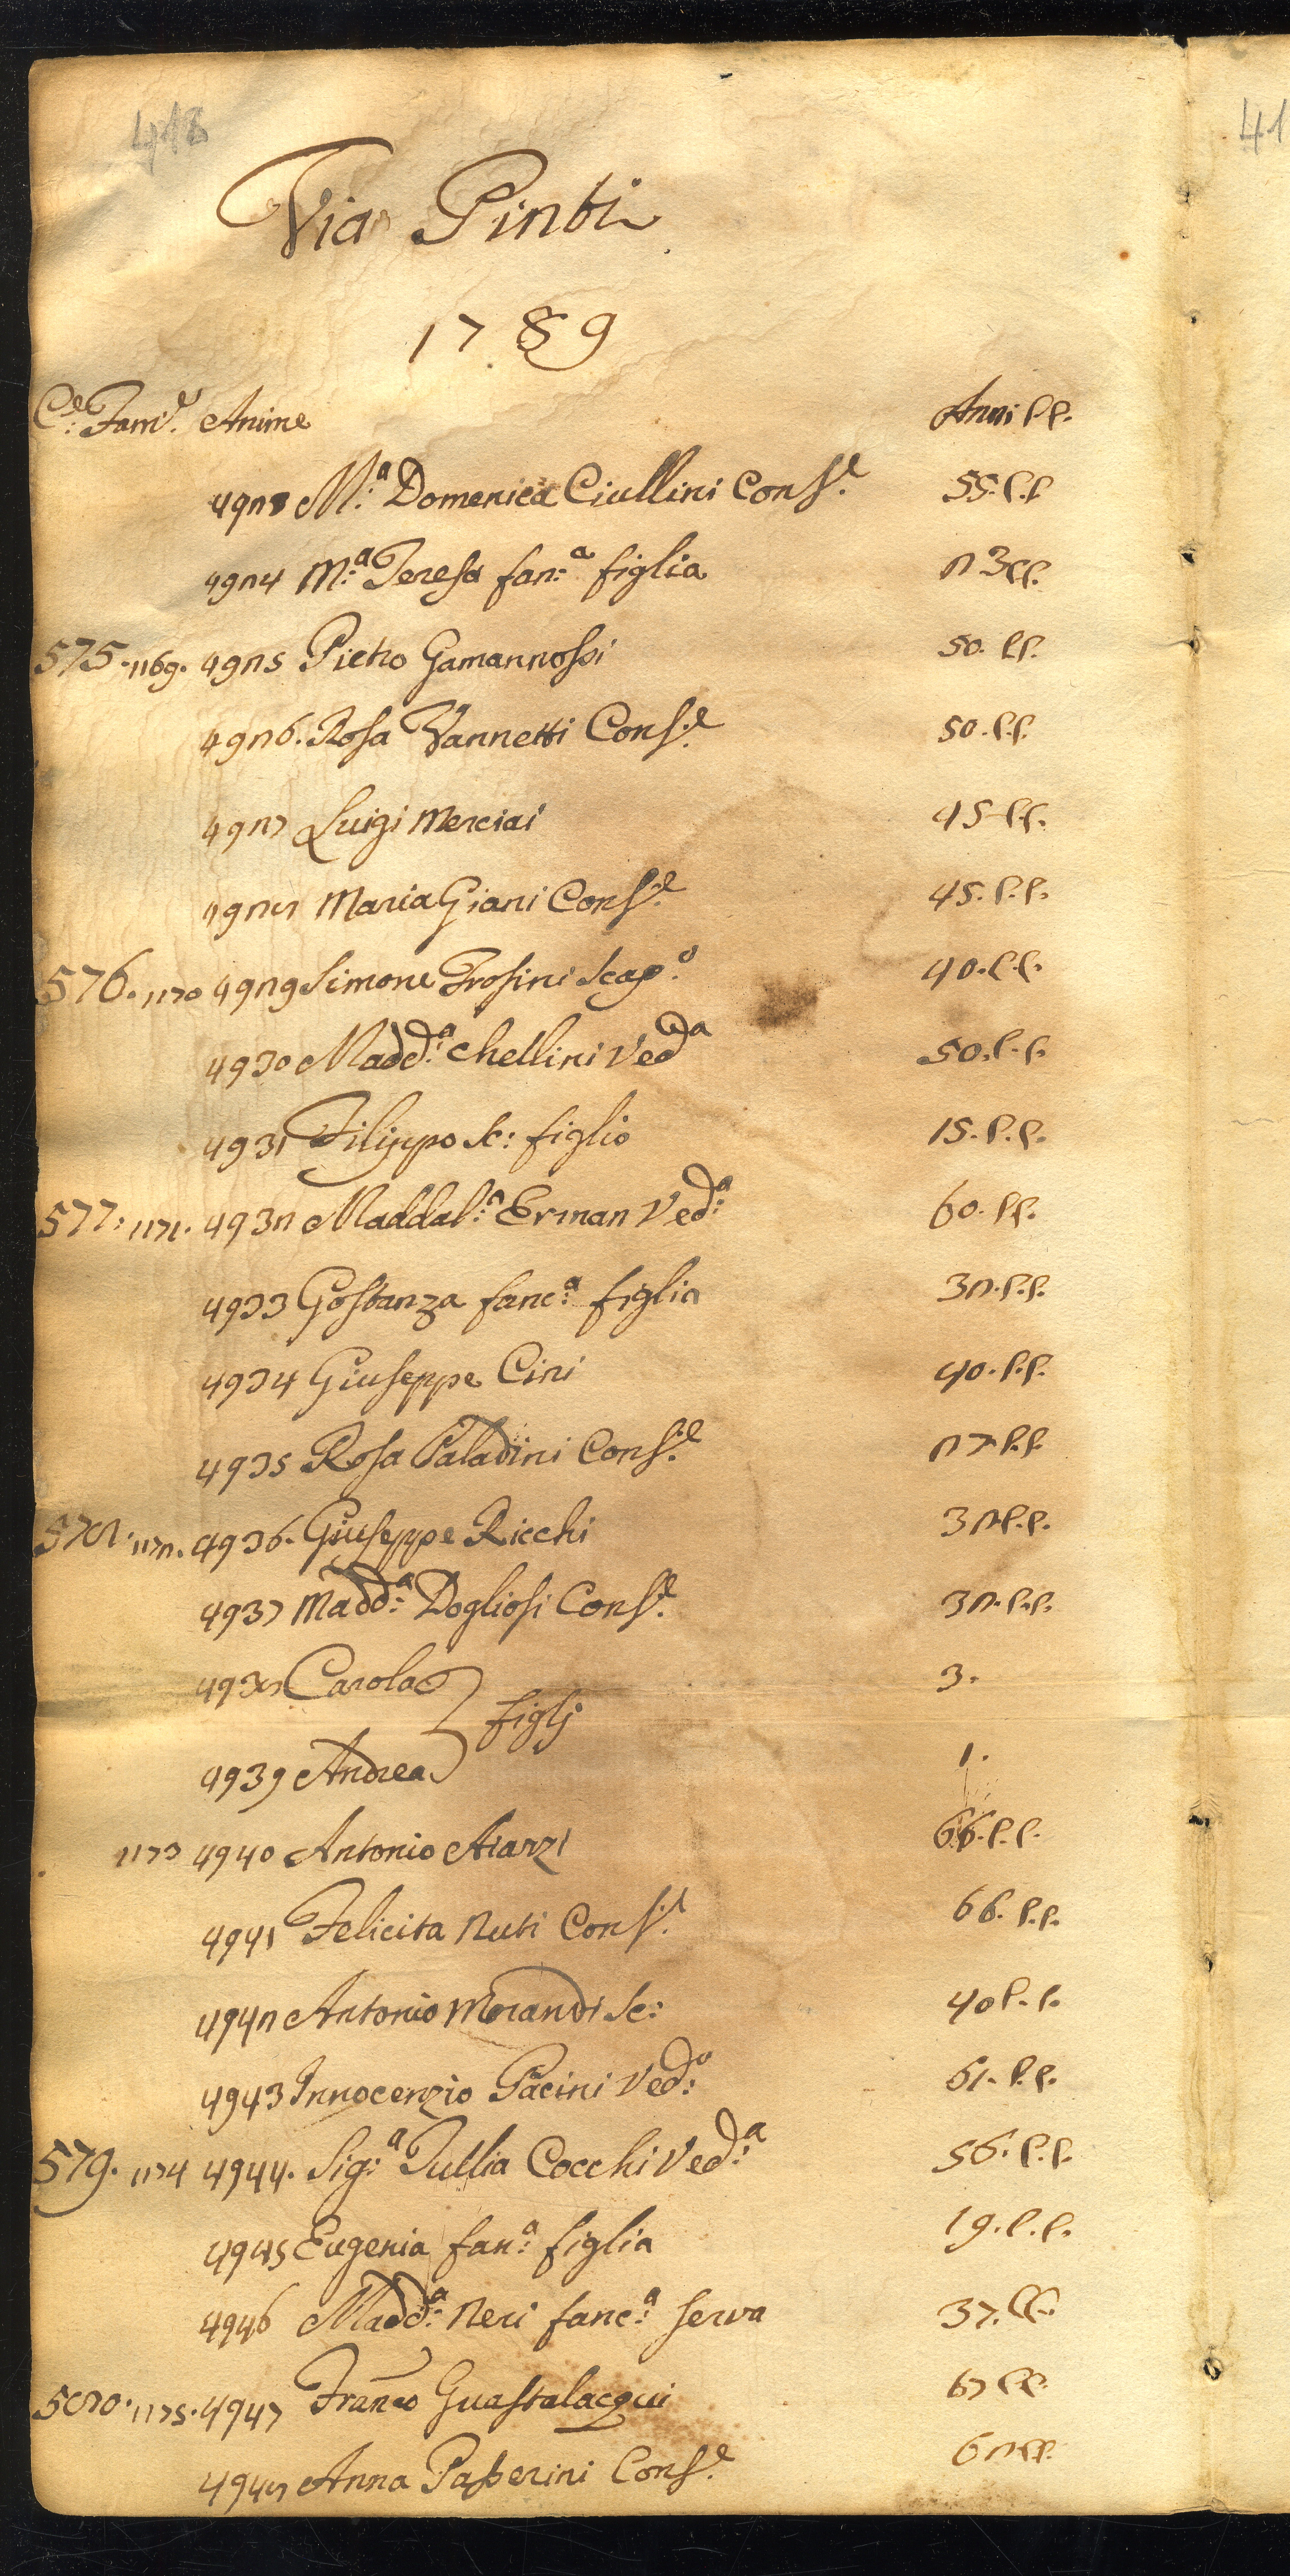 418
41
Via Pinti
1789
C.e Fam.e Anime Anni C.C.
4923 M.a Domenica Ciullini Cons.e 55. C.C.
4924 M.a Teresa fan.a figlia 23 C.C.
575. 1169. 4925 Pietro Gamannossi 50. C.C.
4926. Rosa Vannetti Cons.e 50. C.C.
4927 Luigi Merciai 45 C.C.
4928 Maria Giani Cons.e 45. C.C.
576. 1170 4929 Simone Frosini Scap.o 40. C.C.
4930 Madd.a Chellini Ved.a 50. C.C.
4931 Filippo Sc: figlio 15. C.C.
577: 1171. 4932 Maddal.a Erman Ved.a 60. C.C.
4933 Gostanza fanc.a figlia 32. C.C.
4934 Giuseppe Cini 40. C.C.
4935 Rosa Paladini Cons.e 27 C.C.
578. 1172. 4936. Giuseppe Ricchi 32 C.C.
4937 Madd.a Dogliosi Cons.e 32. C.C.
4938 Carola 3.
figlj
4939 Andrea 1.
1173 4940 Antonio Aiarzi 66. C.C.
4941 Felicita Nuti Cons.e 66. C.C.
4942 Antonio Morandi Sc: 40 C.C.
4943 Innocenzio Pacini Ved.o 61. C.C.
579. 1174 4944. Sig.a Tullia Cocchi Ved.a 56. C.C.
4945 Eugenia fan.a figlia 19. C.C.
4946 Madd.a Neri fanc.a serva 37. C.C.
580. 1175. 4947 Franco Guastalacqui 67 C.C.
4948 Anna Passerini Cons.e 62 C.C.